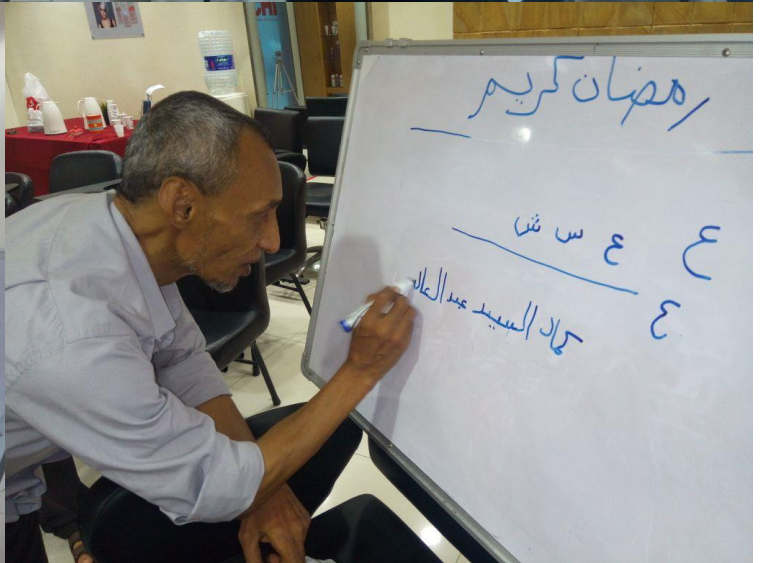 رمضان كريم
ع ع س ش
ع
كمال السيد عبد العال